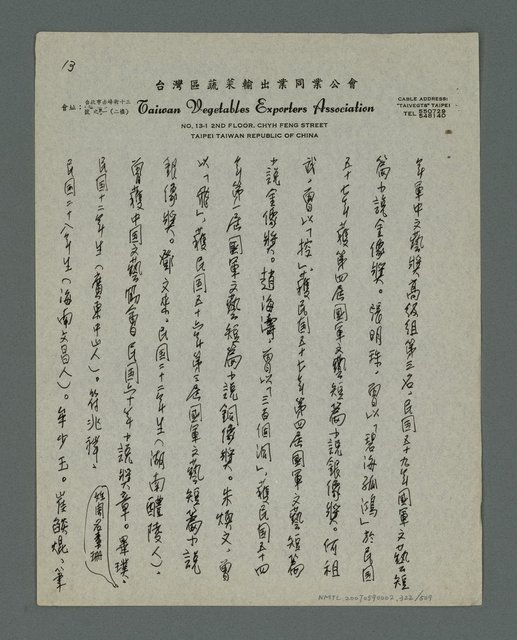 13
台灣區蔬菜輸出業同業公會
會址：台北市赤峰街十三號之一（二樓）
Taiwan Vegetables Exporters Association
CABLE ADDRESS:
"TAIVEGTS" TAIPEI
TEL 550729
548140
NO. 13-1 2ND FLOOR, CHYH FENG STREET
TAIPEI TAIWAN REPUBLIC OF CHINA
年軍中文藝獎高級組第三名，民国五十九年國軍文藝短
篇小說金像獎。張明珠，曾以「碧海孤鴻」於民国
五十七年獲第四屆國軍文藝短篇小說銀像獎。何祖
武，曾以「控」，獲民国五十七年第四屆國軍文藝短篇
小說金像獎。趙海濤，曾以「三百個洞」，獲民国五十四
年第一屆國軍文藝短篇小說銅像獎。朱煥文，曾
以「」，獲民国五十六年第三屆國軍文藝短篇小說
銀像獎。鄧文來。民国二十二年生（湖南醴陵人）。
曾獲中国文藝協會民国六十年小說獎章。畢璞。
民国十一年生（廣東中山人）。符兆祥、
姓周名素珊
民国二十八年生（海南文昌人）。牟少玉。崔燄焜、筆
NMTL 20070590002, 322/509